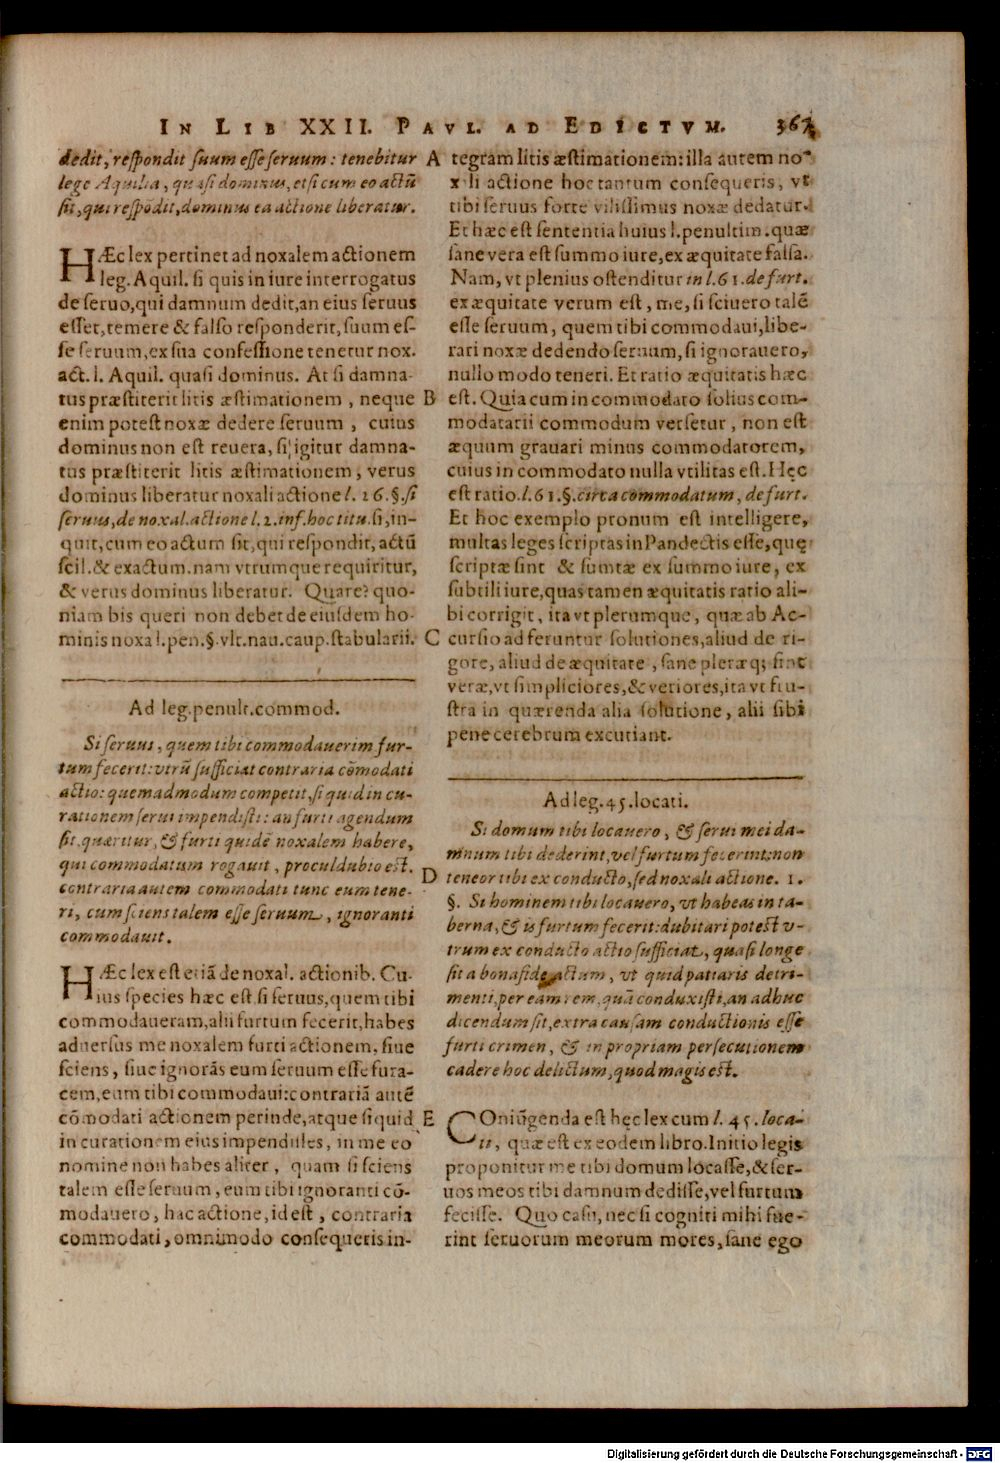 IN LIB XXII. PAVL. AD EDICTVM. 367
dedit, respondit suum esse seruum: tenebitur
lege Aquilia, quasi dominus, et si cum eo actũ
sit, qui respõdit, dominus ea actione liberatur.
HÆc lex pertinet ad noxalem actionem
leg. Aquil. si quis in iure interrogatus
de seruo, qui damnum dedit, an eius seruus
esset, temere & falso responderit, suum es-
se seruum, ex sua confessione tenetur nox.
act. l. Aquil. quasi dominus. At si damna-
tus præstiterit litis æstimationem, neque
enim potest noxæ dedere seruum, cuius
dominus non est reuera, si igitur damna-
tus præstiterit litis æstimationem, verus
dominus liberatur noxali actione l. 26. §. si
seruus, de noxal. actione l. 2. inf. hoc titu. si, in-
quit, cum eo actum sit, qui respondit, actũ
scil. & exactum. nam vtrumque requiritur,
& verus dominus liberatur. Quare? quo-
niam bis queri non debet de eiusdem ho-
minis noxa l. pen. §. vlt. nau. caup. stabularii.
Ad leg. penult. commod.
Si seruus, quem tibi commodauerim fur-
tum fecerit: vtrũ sufficiat contraria cõmodati
actio: quemadmodum competit, si quid in cu-
rationem serui impendisti: an furti agendum
sit, quæritur, & furti quidẽ noxalem habere,
qui commodatum rogauit, proculdubio est.
contraria autem commodati tunc eum tene-
ri, cum sciens talem esse seruum, ignoranti
commodauit.
HÆc lex est etiã de noxal. actionib. Cu-
ius species hæc est. si seruus, quem tibi
commodaueram, alii furtum fecerit, habes
aduersus me noxalem furti actionem, siue
sciens, siue ignorãs eum seruum esse fura-
cem, eum tibi commodaui: contrariã autẽ
cõmodati actionem perinde, atque si quid
in curationem eius impendisses, in me eo
nomine non habes aliter, quam si sciens
talem esse seruum, eum tibi ignoranti cõ-
modauero, hac actione, id est, contraria
commodati, omnimodo consequeris in-
A
B
C
D
E
tegram litis æstimationem: illa autem no-
xali actione hoc tantum consequeris, vt
tibi seruus forte vilissimus noxæ dedatur.
Et hæc est sententia huius l. penultim. quæ
sane vera est summo iure, ex æquitate falsa.
Nam, vt plenius ostenditur in l. 61. de furt.
ex æquitate verum est, me, si sciuero talẽ
esse seruum, quem tibi commodaui, libe-
rari noxæ dedendo seruum, si ignorauero,
nullo modo teneri. Et ratio æquitatis hæc
est. Quia cum in commodato solius com-
modatarii commodum versetur, non est
æquum grauari minus commodatorem,
cuius in commodato nulla vtilitas est. Hęc
est ratio. l. 61. §. circa commodatum, de furt.
Et hoc exemplo pronum est intelligere,
multas leges scriptas in Pandectis esse, quę
scriptæ sint & sumtæ ex summo iure, ex
subtili iure, quas tamen æquitatis ratio ali-
bi corrigit, ita vt plerumque, quæ ab Ac-
cursio ad feruntur solutiones, aliud de ri-
gore, aliud de æquitate, sane pleræq; sint
veræ, vt simpliciores, & veriores, ita vt fru-
stra in quærenda alia solutione, alii sibi
pene cerebrum excutiant.
Ad leg. 45. locati.
Si domum tibi locauero, & serui mei da-
mnum tibi dederint, vel furtum fecerint: non
teneor tibi ex conducto, sed noxali actione. 1.
§. Si hominem tibi locauero, vt habeas in ta-
berna, & is furtum fecerit: dubitari potest v-
trum ex conducto actio sufficiat, quasi longe
sit a bona fide actum, vt quid patiaris detri-
menti, per eam rem, quã conduxisti, an adhuc
dicendum sit, extra causam conductionis esse
furti crimen, & in propriam persecutionem
cadere hoc delictum, quod magis est.
COniũgenda est hęc lex cum l. 45. loca-
ti, quæ est ex eodem libro. Initio legis
proponitur me tibi domum locasse, & ser-
uos meos tibi damnum dedisse, vel furtum
fecisse. Quo casu, nec si cogniti mihi fue-
rint seruorum meorum mores, sane ego
Digitalisierung gefördert durch die Deutsche Forschungsgemeinschaft - DFG